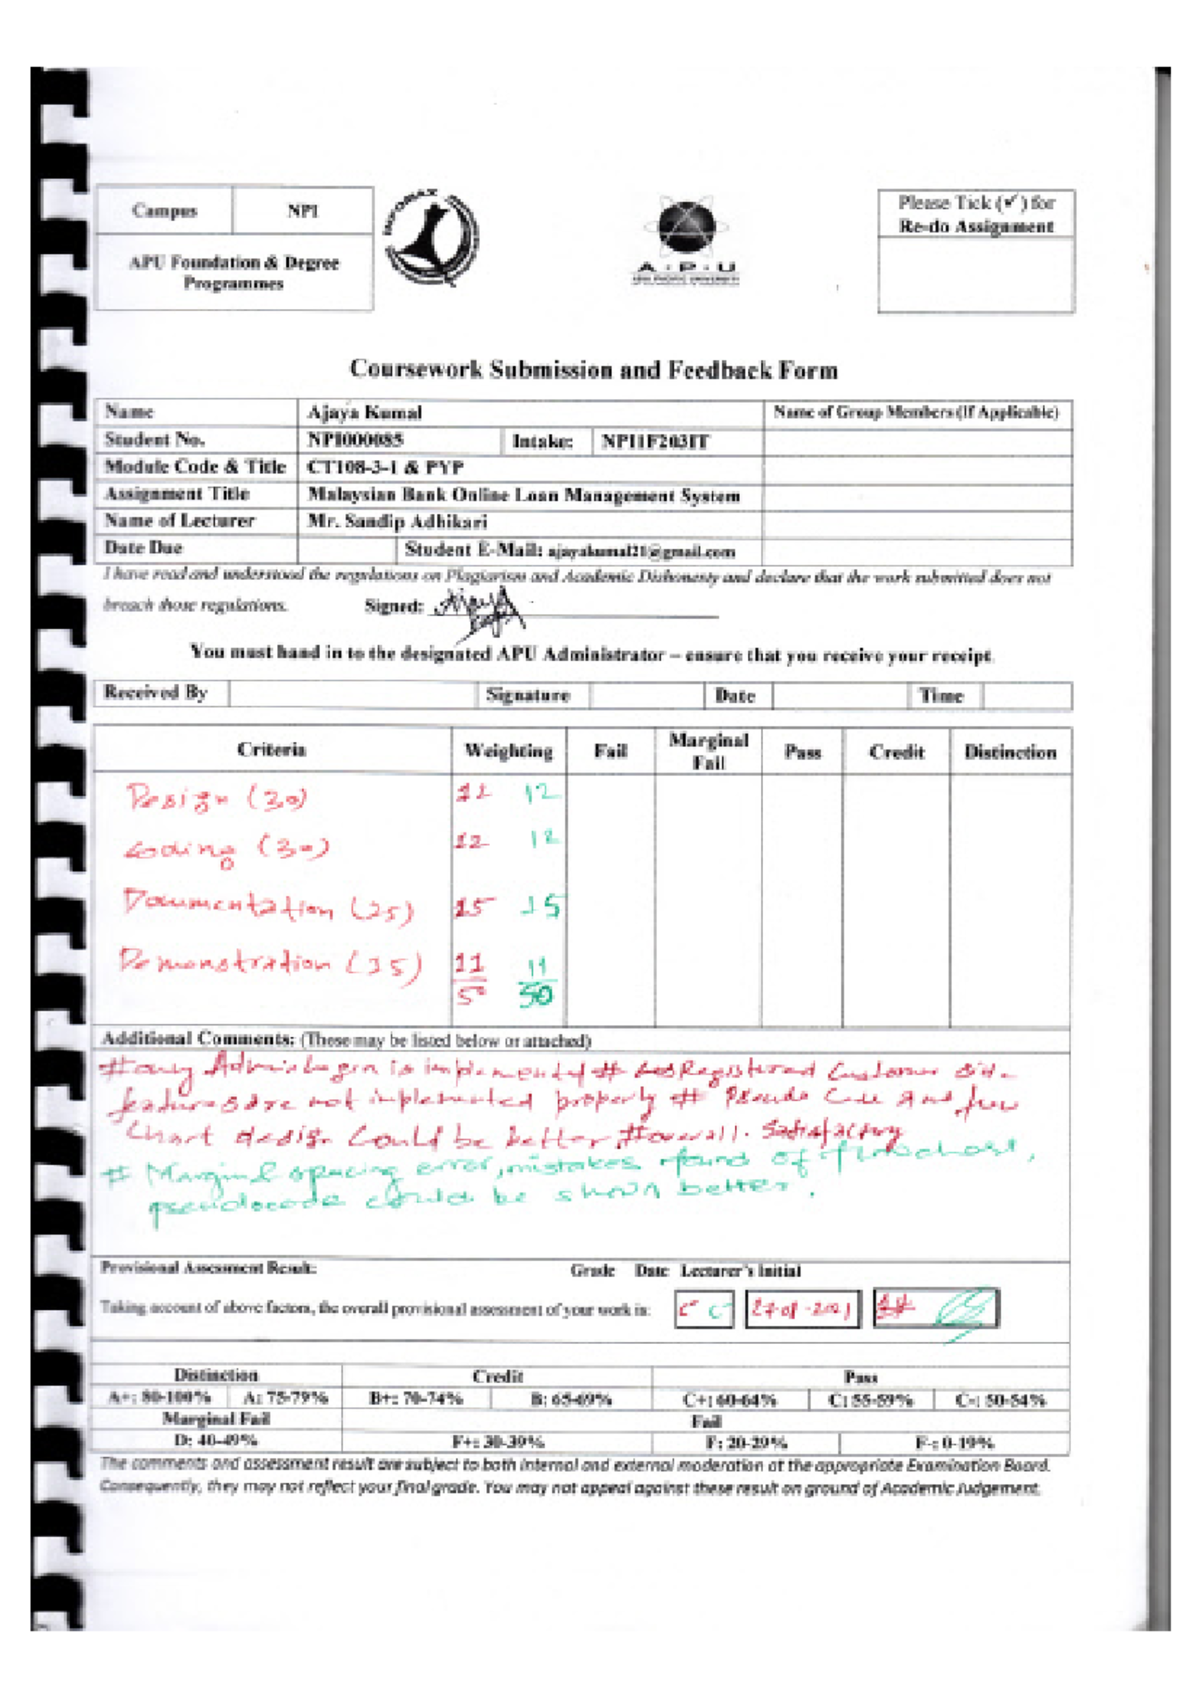 Campus NPI
APU Foundation & Degree
Programmes
INFOMAX
A · P · U
ASIA PACIFIC UNIVERSITY
Please Tick (✓) for
Re-do Assignment
Coursework Submission and Feedback Form
Name Ajaya Kumal Name of Group Members (If Applicable)
Student No. NPI000085 Intake: NPI1F203IT
Module Code & Title CT108-3-1 & PYP
Assignment Title Malaysian Bank Online Loan Management System
Name of Lecturer Mr. Sandip Adhikari
Date Due Student E-Mail: ajayakumal21@gmail.com
I have read and understood the regulations on Plagiarism and Academic Dishonesty and declare that the work submitted does not
breach those regulations. Signed:
You must hand in to the designated APU Administrator – ensure that you receive your receipt.
Received By Signature Date Time
Criteria Weighting Fail Marginal Fail Pass Credit Distinction
Design (30) 12 12
Coding (30) 12 12
Documentation (25) 15 15
Demonstration (15) 11 11
50 50
Additional Comments: (These may be listed below or attached)
# only Admin Login is implemented # Registered Customer side
features are not implemented properly # Pseudo Code and flow
Chart design could be better, # overall. Satisfactory
# Marginal spacing error, mistakes found of flowchart,
pseudocode could be shown better.
Provisional Assessment Result: Grade Date Lecturer's Initial
Taking account of above factors, the overall provisional assessment of your work is: C- C-
Distinction Credit Pass
A+: 80-100% A: 75-79% B+: 70-74% B: 65-69% C+: 60-64% C: 55-59% C-: 50-54%
Marginal Fail Fail
D: 40-49% F+: 30-39% F: 20-29% F-: 0-19%
The comments and assessment result are subject to both internal and external moderation at the appropriate Examination Board.
Consequently, they may not reflect your final grade. You may not appeal against these result on ground of Academic Judgement.